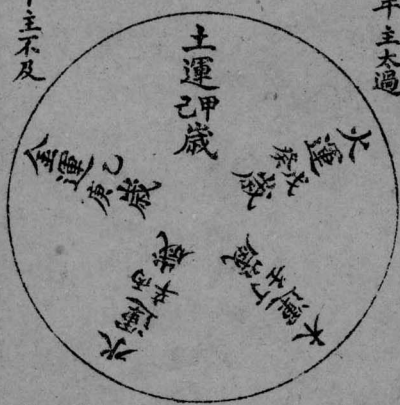 年主太過
年主不及
土運甲己歲
火運戊癸歲
木運丁壬歲
水運丙辛歲
金運乙庚歲